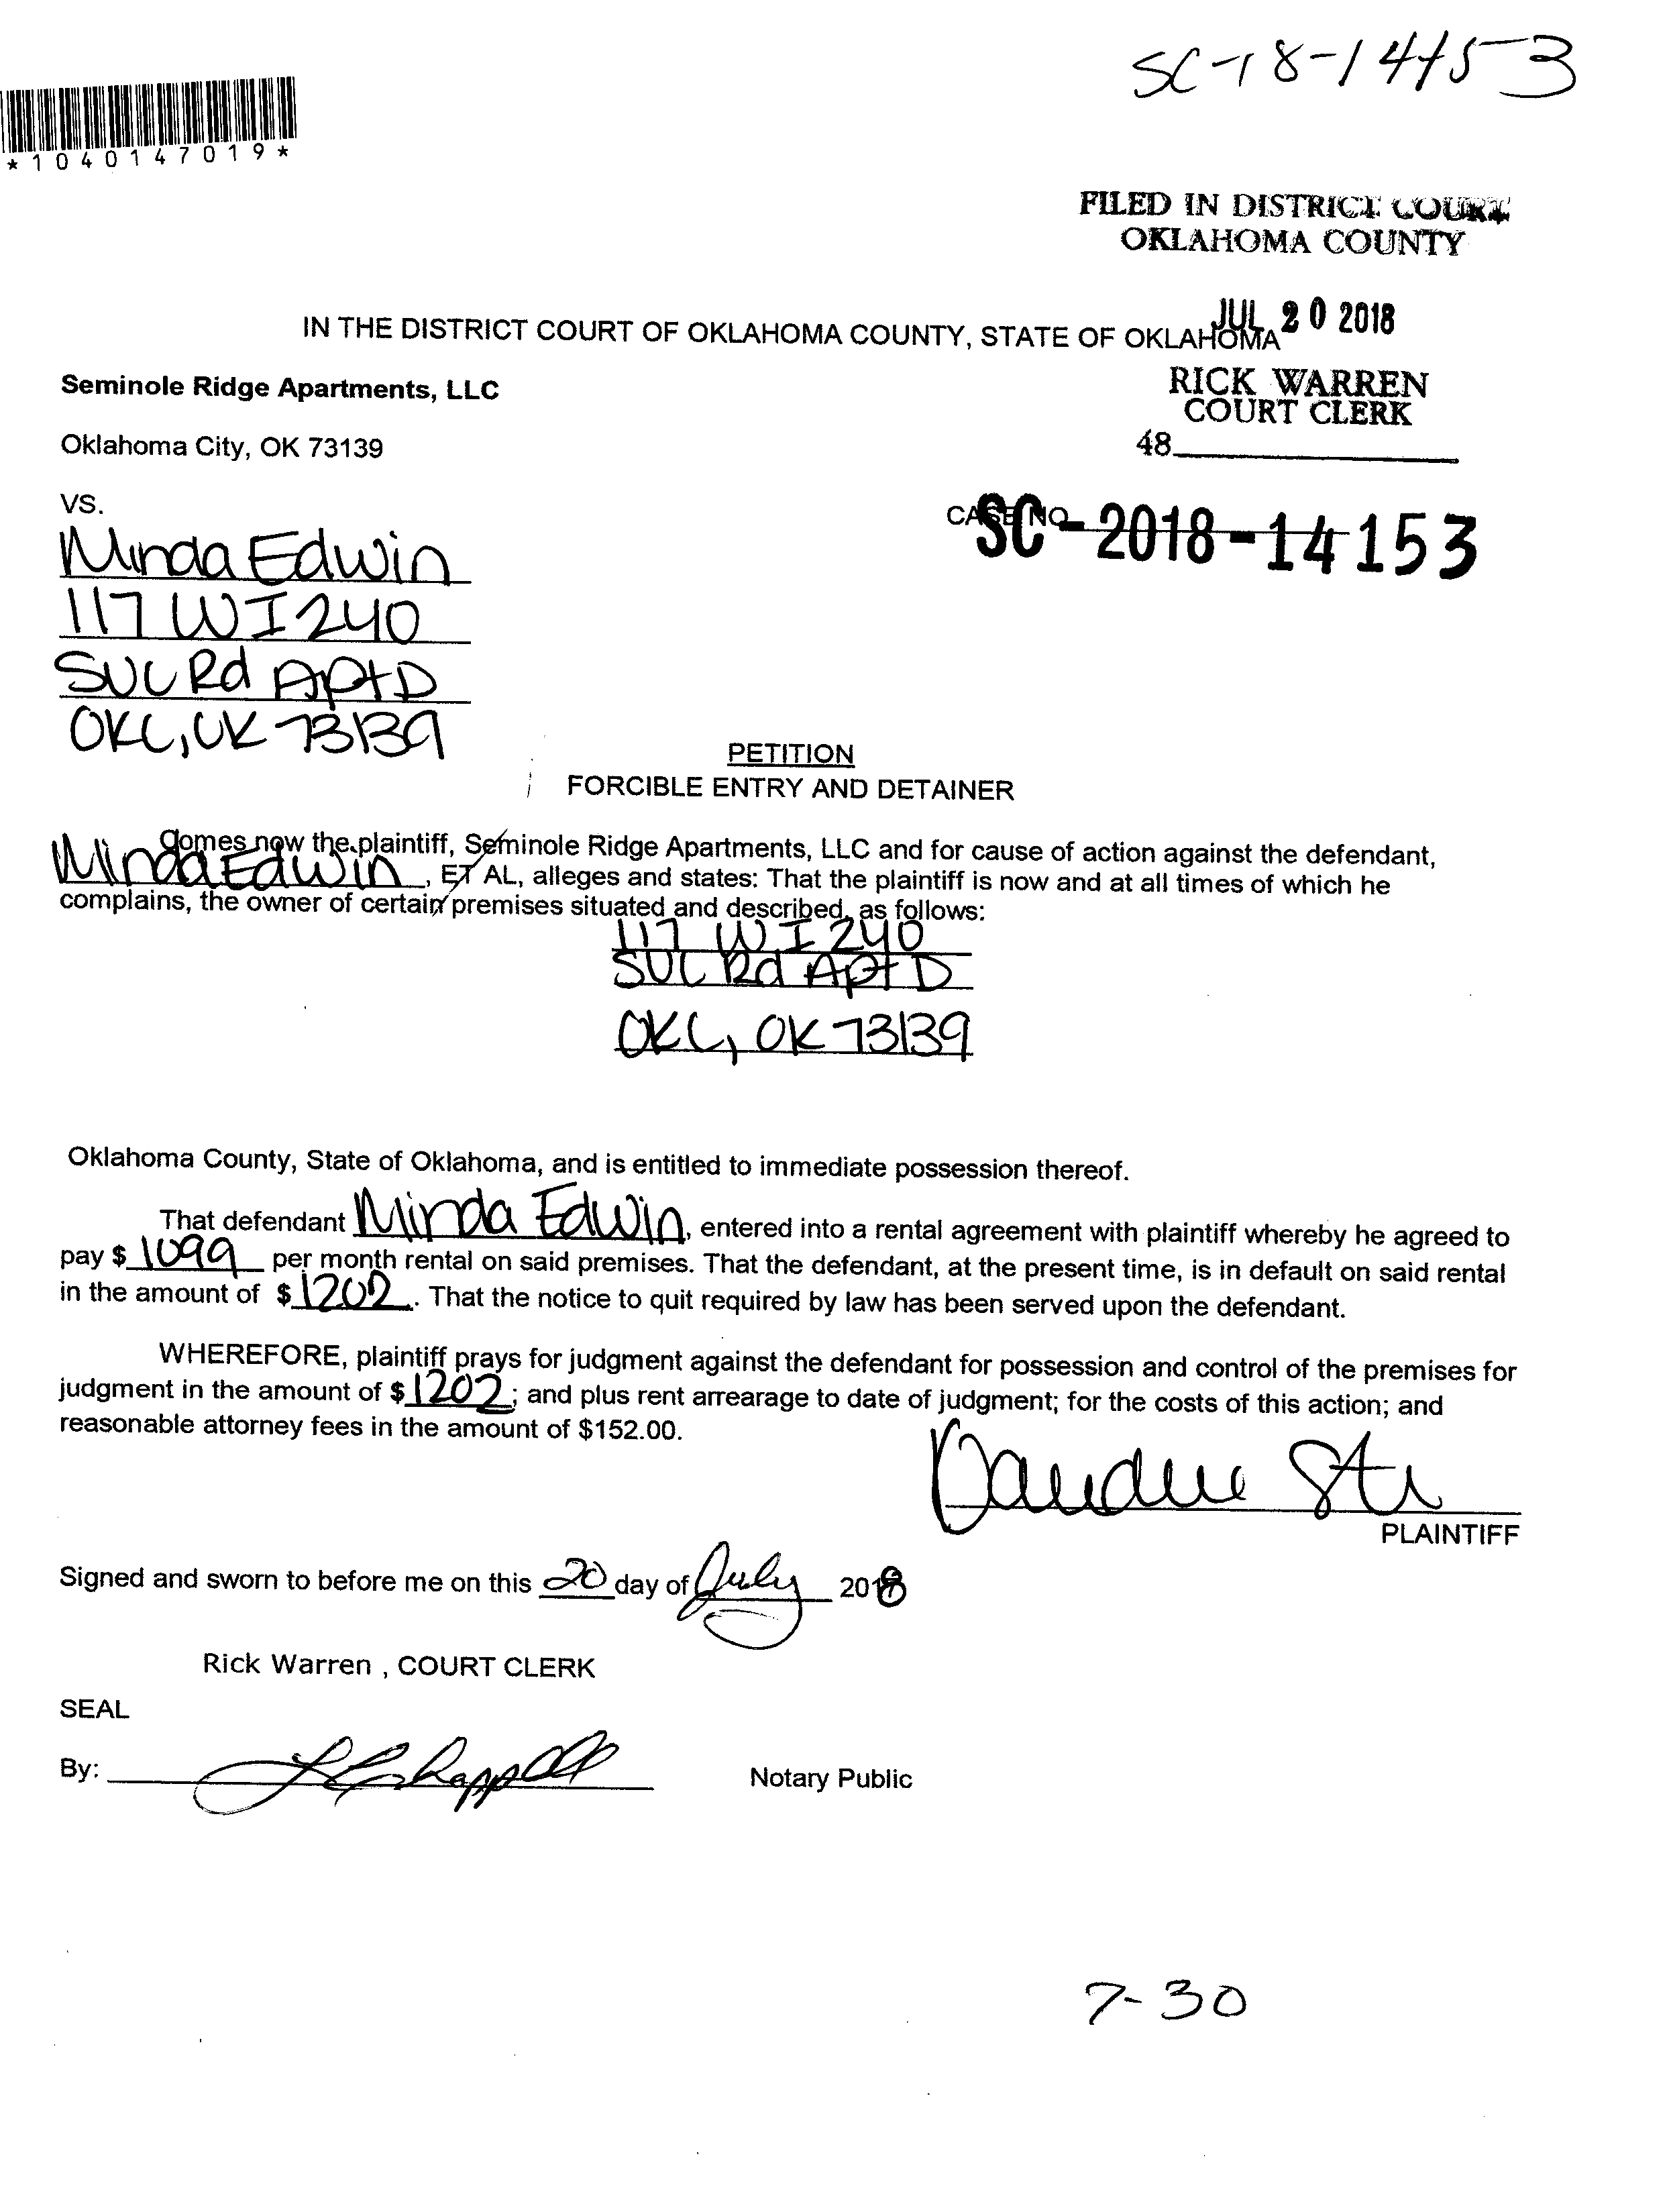 SC-18-14153
*1040147019*
FILED IN DISTRICT COURT
OKLAHOMA COUNTY
JUL 20 2018
IN THE DISTRICT COURT OF OKLAHOMA COUNTY, STATE OF OKLAHOMA
Seminole Ridge Apartments, LLC
RICK WARREN
COURT CLERK
Oklahoma City, OK 73139
48
VS.
CASE NO.
SC-2018-14153
Minda Edwin
117 W I 240
SVC Rd Apt D
OKC, OK 73139
PETITION
FORCIBLE ENTRY AND DETAINER
Comes now the plaintiff, Seminole Ridge Apartments, LLC and for cause of action against the defendant,
Minda Edwin, ET AL, alleges and states: That the plaintiff is now and at all times of which he
complains, the owner of certain premises situated and described, as follows:
117 W I 240
SVC Rd Apt D
OKC, OK 73139
Oklahoma County, State of Oklahoma, and is entitled to immediate possession thereof.
That defendant Minda Edwin, entered into a rental agreement with plaintiff whereby he agreed to
pay $ 1099 per month rental on said premises. That the defendant, at the present time, is in default on said rental
in the amount of $ 1202. That the notice to quit required by law has been served upon the defendant.
WHEREFORE, plaintiff prays for judgment against the defendant for possession and control of the premises for
judgment in the amount of $ 1202; and plus rent arrearage to date of judgment; for the costs of this action; and
reasonable attorney fees in the amount of $152.00.
PLAINTIFF
Signed and sworn to before me on this 20 day of July 2018
Rick Warren , COURT CLERK
SEAL
By:
Notary Public
7-30